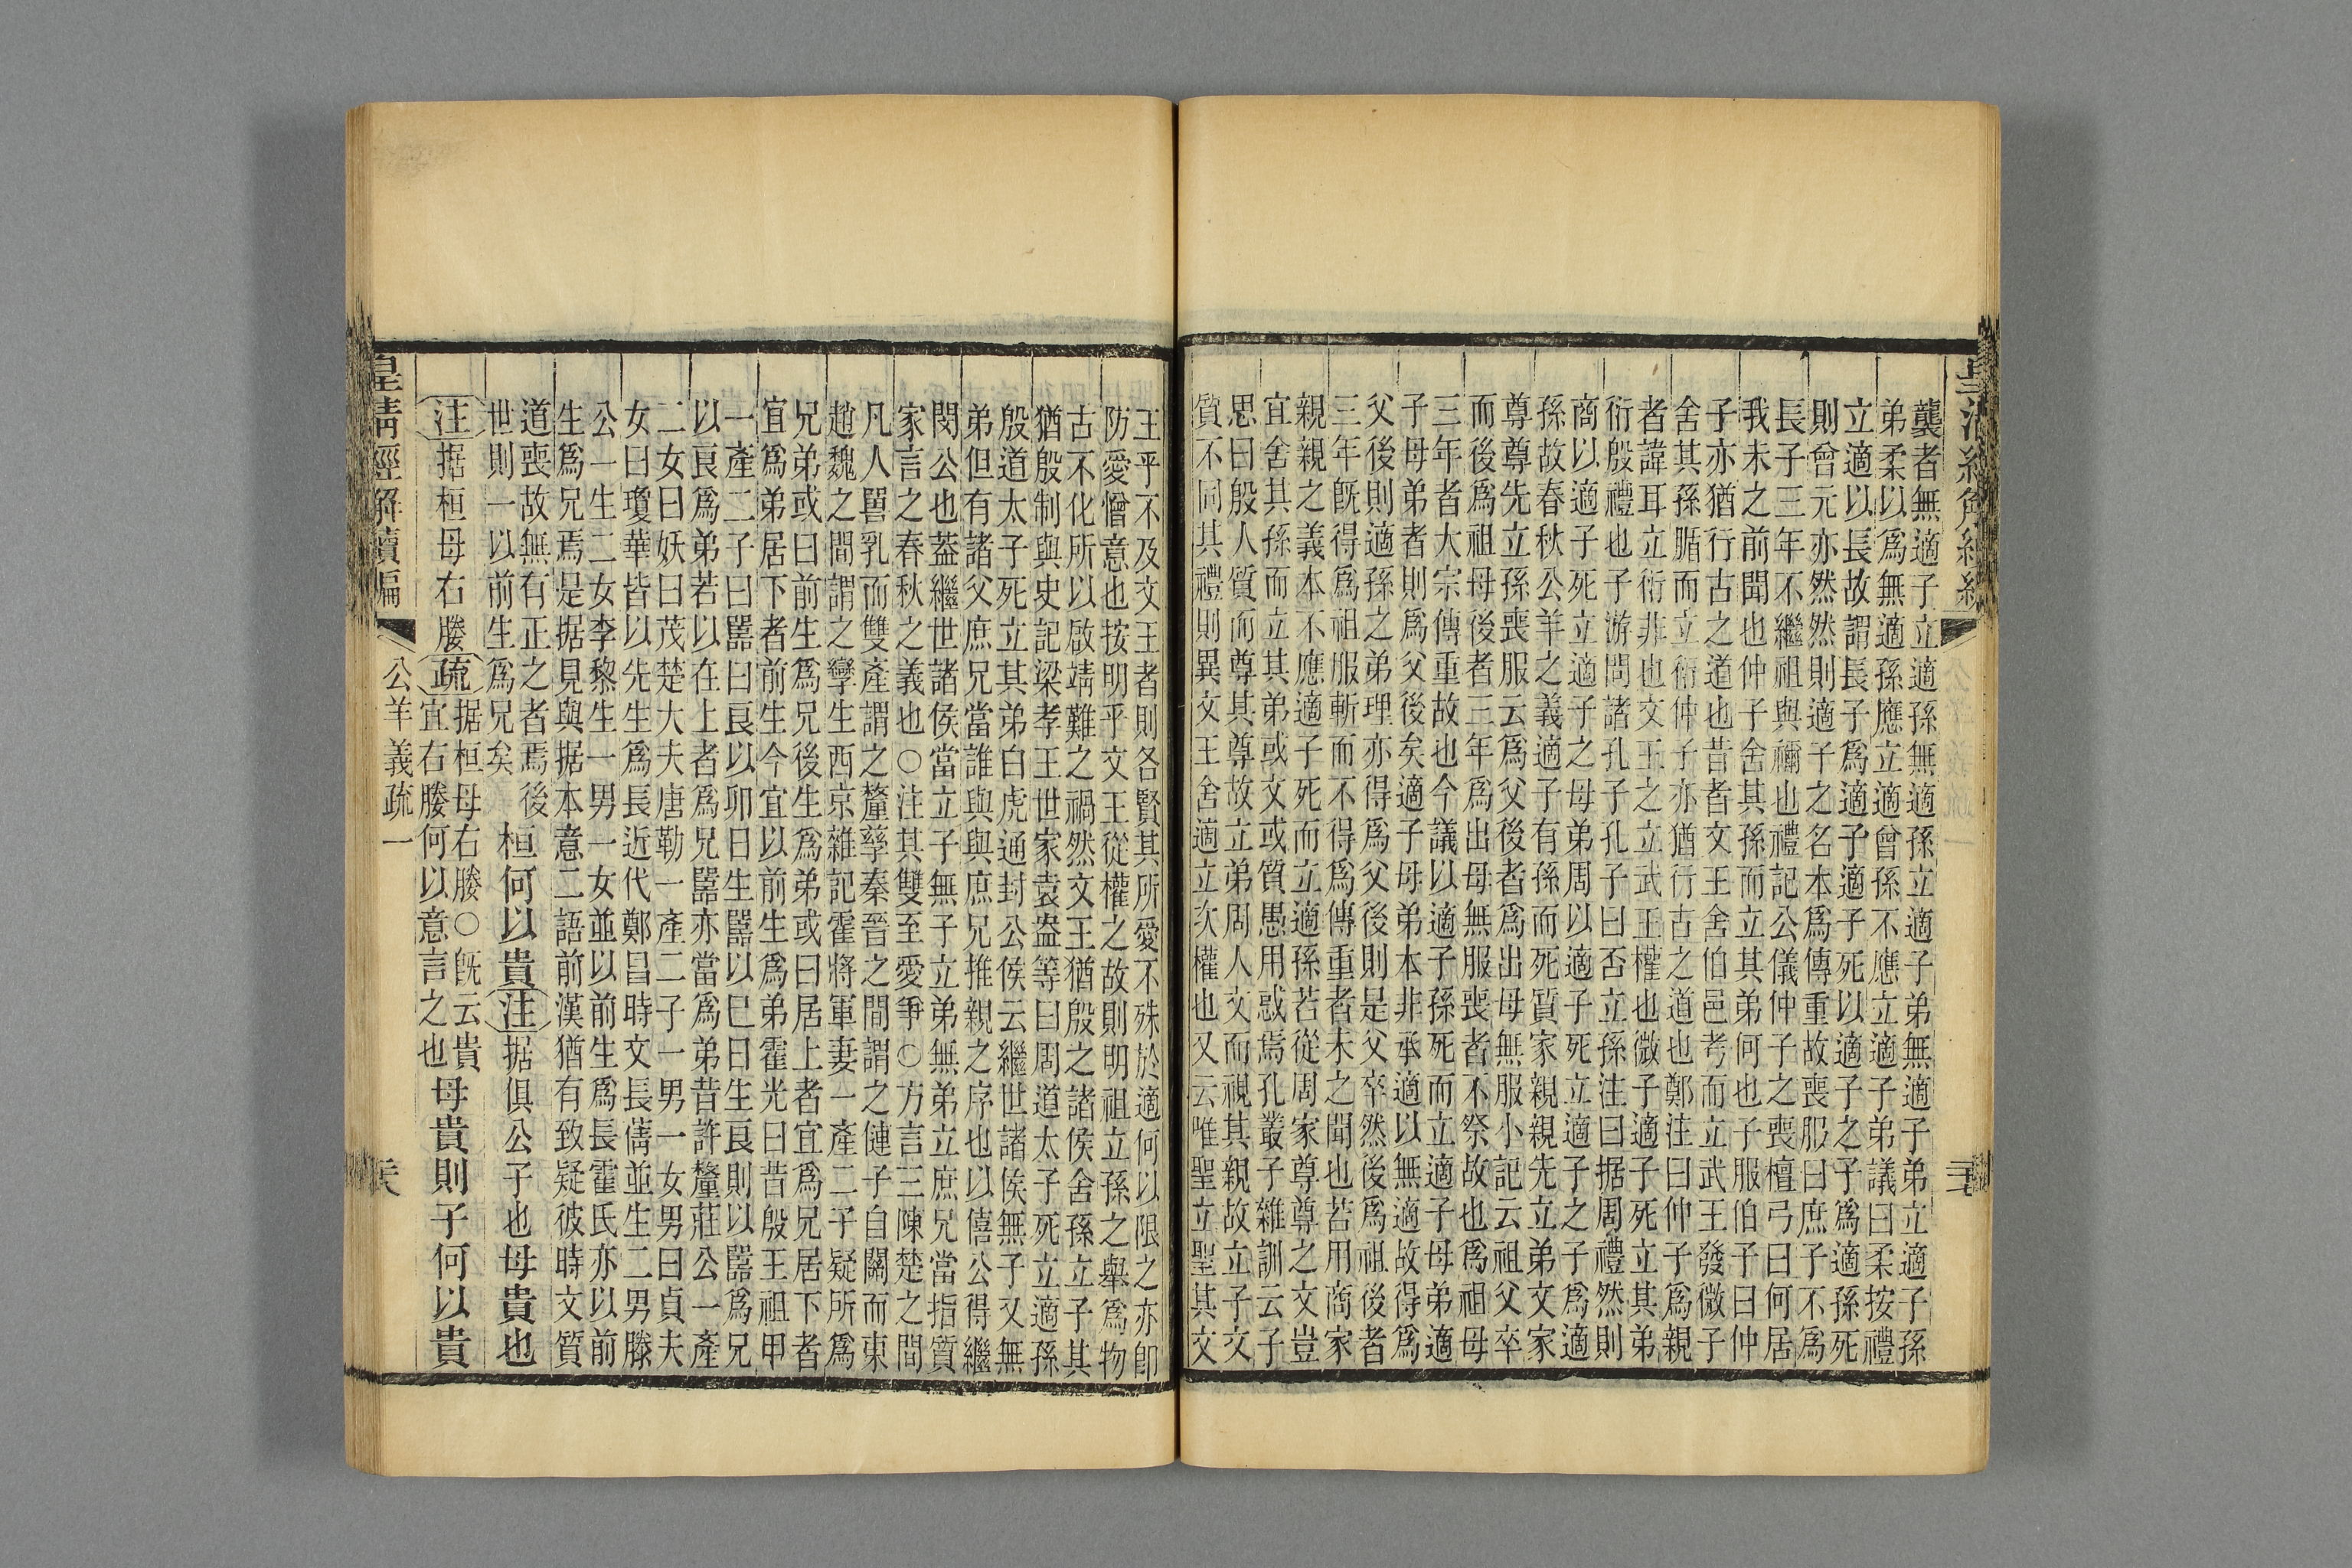 皇清經解續編
襲者無適子立適孫無適孫立適子弟無適子弟立適子孫
弟柔以爲無適孫應立適曾孫不應立適子弟議曰柔按禮
立適以長故謂長子爲適子適子死以適子之子爲適孫死
則曾元亦然然則適子之名本爲傳重故喪服曰庶子不爲
長子三年不繼祖與禰也禮記公儀仲子之喪檀弓曰何居
我未之前聞也仲子舍其孫而立其弟何也子服伯子曰仲
子亦猶行古之道也昔者文王舍伯邑考而立武王發微子
舍其孫腯而立衍仲子亦猶行古之道也鄭注曰仲子爲親
者諱耳立衍非也文王之立武王權也微子適子死立其弟
衍殷禮也子游問諸孔子孔子曰否立孫注曰据周禮然則
商以適子死立適子之母弟周以適子死立適子之子爲適
孫故春秋公羊之義適子有孫而死質家親親先立弟文家
尊尊先立孫喪服云爲父後者爲出母無服小記云祖父卒
而後爲祖母後者三年爲出母無服喪者不祭故也爲祖母
三年者大宗傳重故也今議以適子孫死而立適子母弟適
子母弟者則爲父後矣適子母弟本非承適以無適故得爲
父後則適孫之弟理亦得爲父後則是父卒然後爲祖後者
三年旣得爲祖服斬而不得爲傳重者未之聞也若用商家
親親之義本不應適子死而立適孫若從周家尊尊之文豈
宜舍其孫而立其弟或文或質愚用惑焉孔叢子雜訓云子
思曰殷人質而尊其尊故立弟周人文而視其親故立子文
質不同其禮則異文王舍適立次權也又云唯聖立聖其文
王乎不及文王者則各賢其所愛不殊於適何以限之亦卽
防愛憎意也按明乎文王從權之故則明祖立孫之舉爲物
古不化所以啟靖難之禍然文王猶殷之諸侯舍孫立子其
猶殷制與史記梁孝王世家袁盎等曰周道太子死立適孫
殷道太子死立其弟白虎通封公侯云繼世諸侯無子又無
弟但有諸父庶兄當誰與與庶兄推親之序也以僖公得繼
閔公也葢繼世諸侯當立子無子立弟無弟立庶兄當指質
家言之春秋之義也○注其雙至愛爭○方言三陳楚之間
凡人嘼乳而雙產謂之釐孳秦晉之間謂之僆子自關而東
趙魏之間謂之孿生西京雜記霍將軍妻一產二子疑所爲
兄弟或曰前生爲兄後生爲弟或曰居上者宜爲兄居下者
宜爲弟居下者前生今宜以前生爲弟霍光曰昔殷王祖甲
一產二子曰嚚曰良以卯日生嚚以巳日生良則以嚚爲兄
以良爲弟若以在上者爲兄嚚亦當爲弟昔許釐莊公一產
二女曰妖曰茂楚大夫唐勒一產二子一男一女男曰貞夫
女曰瓊華皆以先生爲長近代鄭昌時文長蒨並生二男滕
公一生二女李黎生一男一女並以前生爲長霍氏亦以前
生爲兄焉是据見與据本意二語前漢猶有致疑彼時文質
道喪故無有正之者焉後
世則一以前生爲兄矣
桓何以貴注据俱公子也母貴也
注据桓母右媵疏据桓母右媵○旣云貴
宜右媵何以意言之也
母貴則子何以貴
皇清經解續編
公羊義疏一